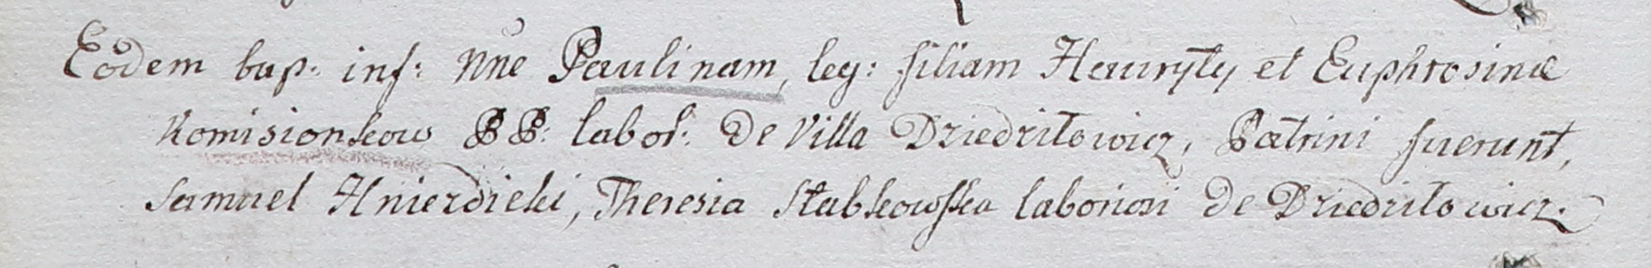 Eodem bap: inf: Nne Paulinam, leg: filiam Hauryły et Euphrosinæ
Komisionkow PP: labor: De Villa Dziedziłowicz, Patrini fuerunt,
Samuel Hnierdicki, Theresia Stabkowska laboriosi de Dziedziłowicz.